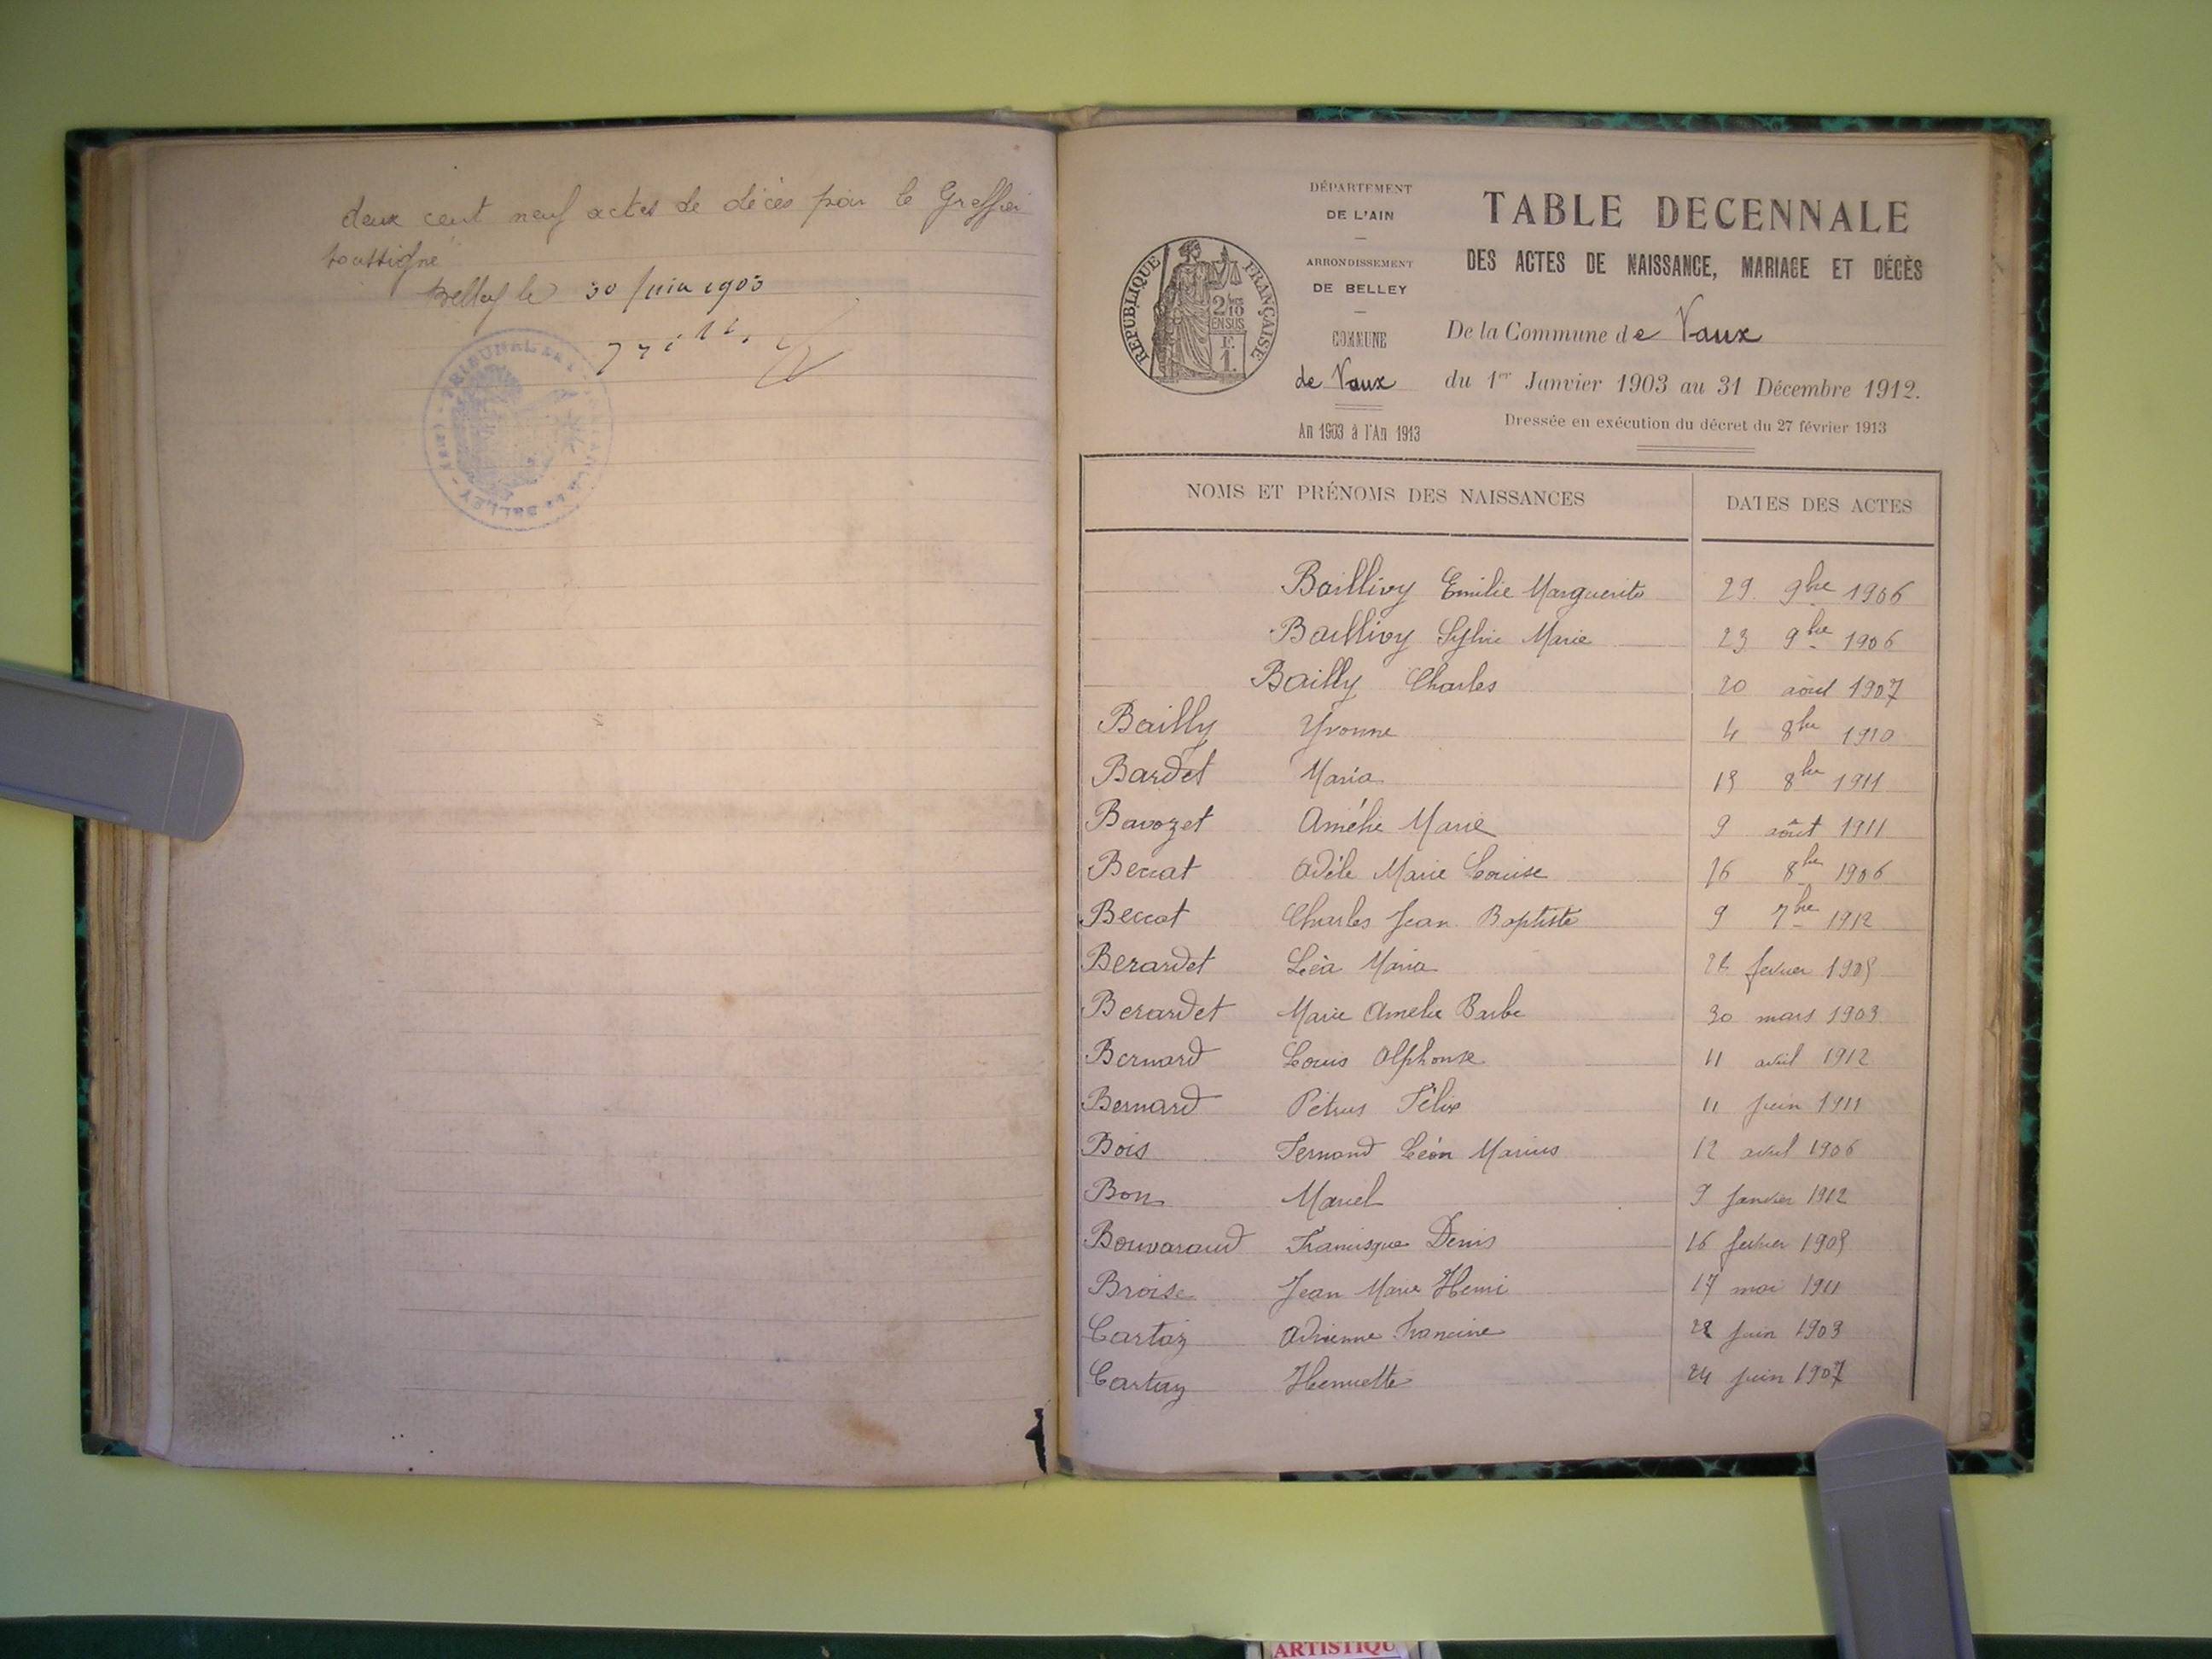 deux cent neuf actes de décès par le Greffier
soussigné
Belley le 30 Juin 1903
TRIBUNAL DE 1
BELLEY (AIN)
RÉPUBLIQUE FRANÇAISE
2/10
EN SUS
F.
1.
DÉPARTEMENT
DE L'AIN
ARRONDISSEMENT
DE BELLEY
COMMUNE
de Vaux
An 1903 à l'An 1913
TABLE DECENNALE
DES ACTES DE NAISSANCE, MARIAGE ET DÉCÈS
De la Commune de Vaux
du 1er Janvier 1903 au 31 Décembre 1912.
Dressée en exécution du décret du 27 février 1913
NOMS ET PRÉNOMS DES NAISSANCES DATES DES ACTES
Baillivy Emilie Marguerite 29 9bre 1906
Baillivy Sylvie Marie 23 9bre 1906
Bailly Charles 20 août 1907
Bailly Yvonne 4 8bre 1910
Bardet Maria 13 8bre 1911
Bavozet Amélie Marie 9 août 1911
Beccat Adèle Marie Louise 16 8bre 1906
Beccat Charles Jean Baptiste 9 7bre 1912
Berardet Léa Maria février
Berardet Marie Amelie Barbe 30 mars 1903
Bernard Louis Alphonse 11 avril 1912
Bernard Pétrus Félix 11 juin 1911
Bois Fernand Léon Marius 12 avril 1906
Bon Marcel 9 Janvier 1912
Bouvaraud Francisque Denis 16 fevrier
Broise Jean Marie Henri 17 mai 1911
Cartaz Adrienne Francine juin 1903
Cartaz Henriette 24 juin 1907
ARTISTIQU